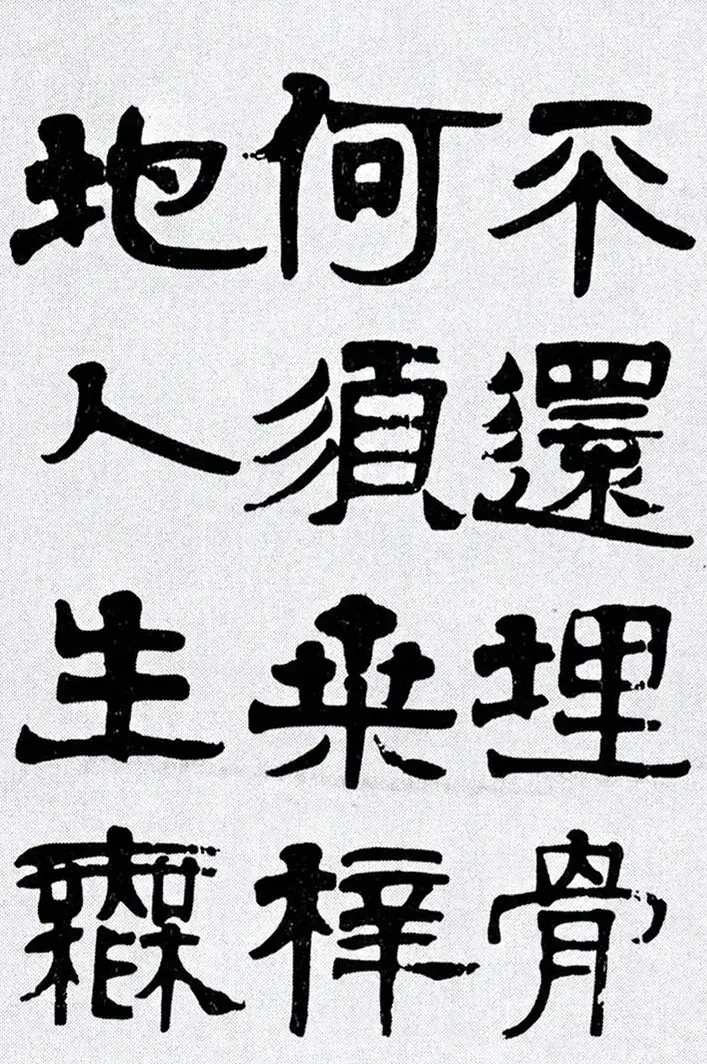 不還埋骨
何須桒梓
地人生無